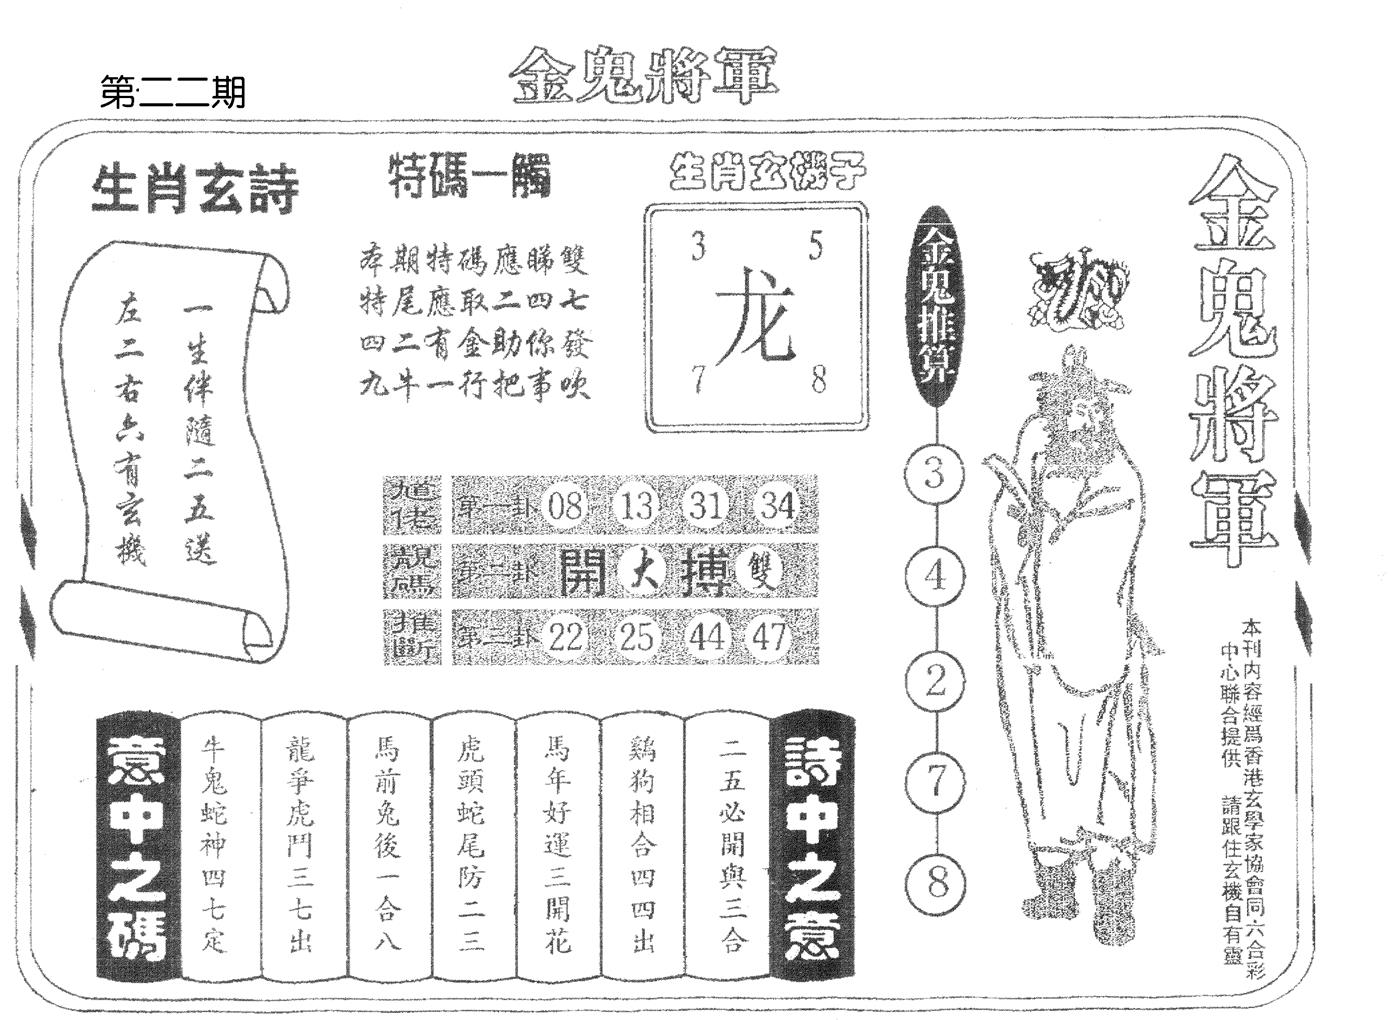 金鬼將軍
第二二期
生肖玄詩
一生伴隨二五送
左二右六有玄機
特碼一觸
本期特碼應睇雙
特尾應取二四七
四二有金助你發
九牛一行把事吹
生肖玄機子
3 5
龙
7 8
金鬼推算
3
4
2
7
8
金鬼將軍
本刊内容經爲香港玄學家協會同六合彩
中心聯合提供 請跟住玄機自有靈
佬
靚碼
推斷
第一卦 08 13 31 34
第二卦 開大搏雙
第三卦 22 25 44 47
詩中之意
二五必開與三合
鷄狗相合四四出
馬年好運三開花
虎頭蛇尾防二三
馬前兔後一合八
龍爭虎鬥三七出
牛鬼蛇神四七定
意中之碼